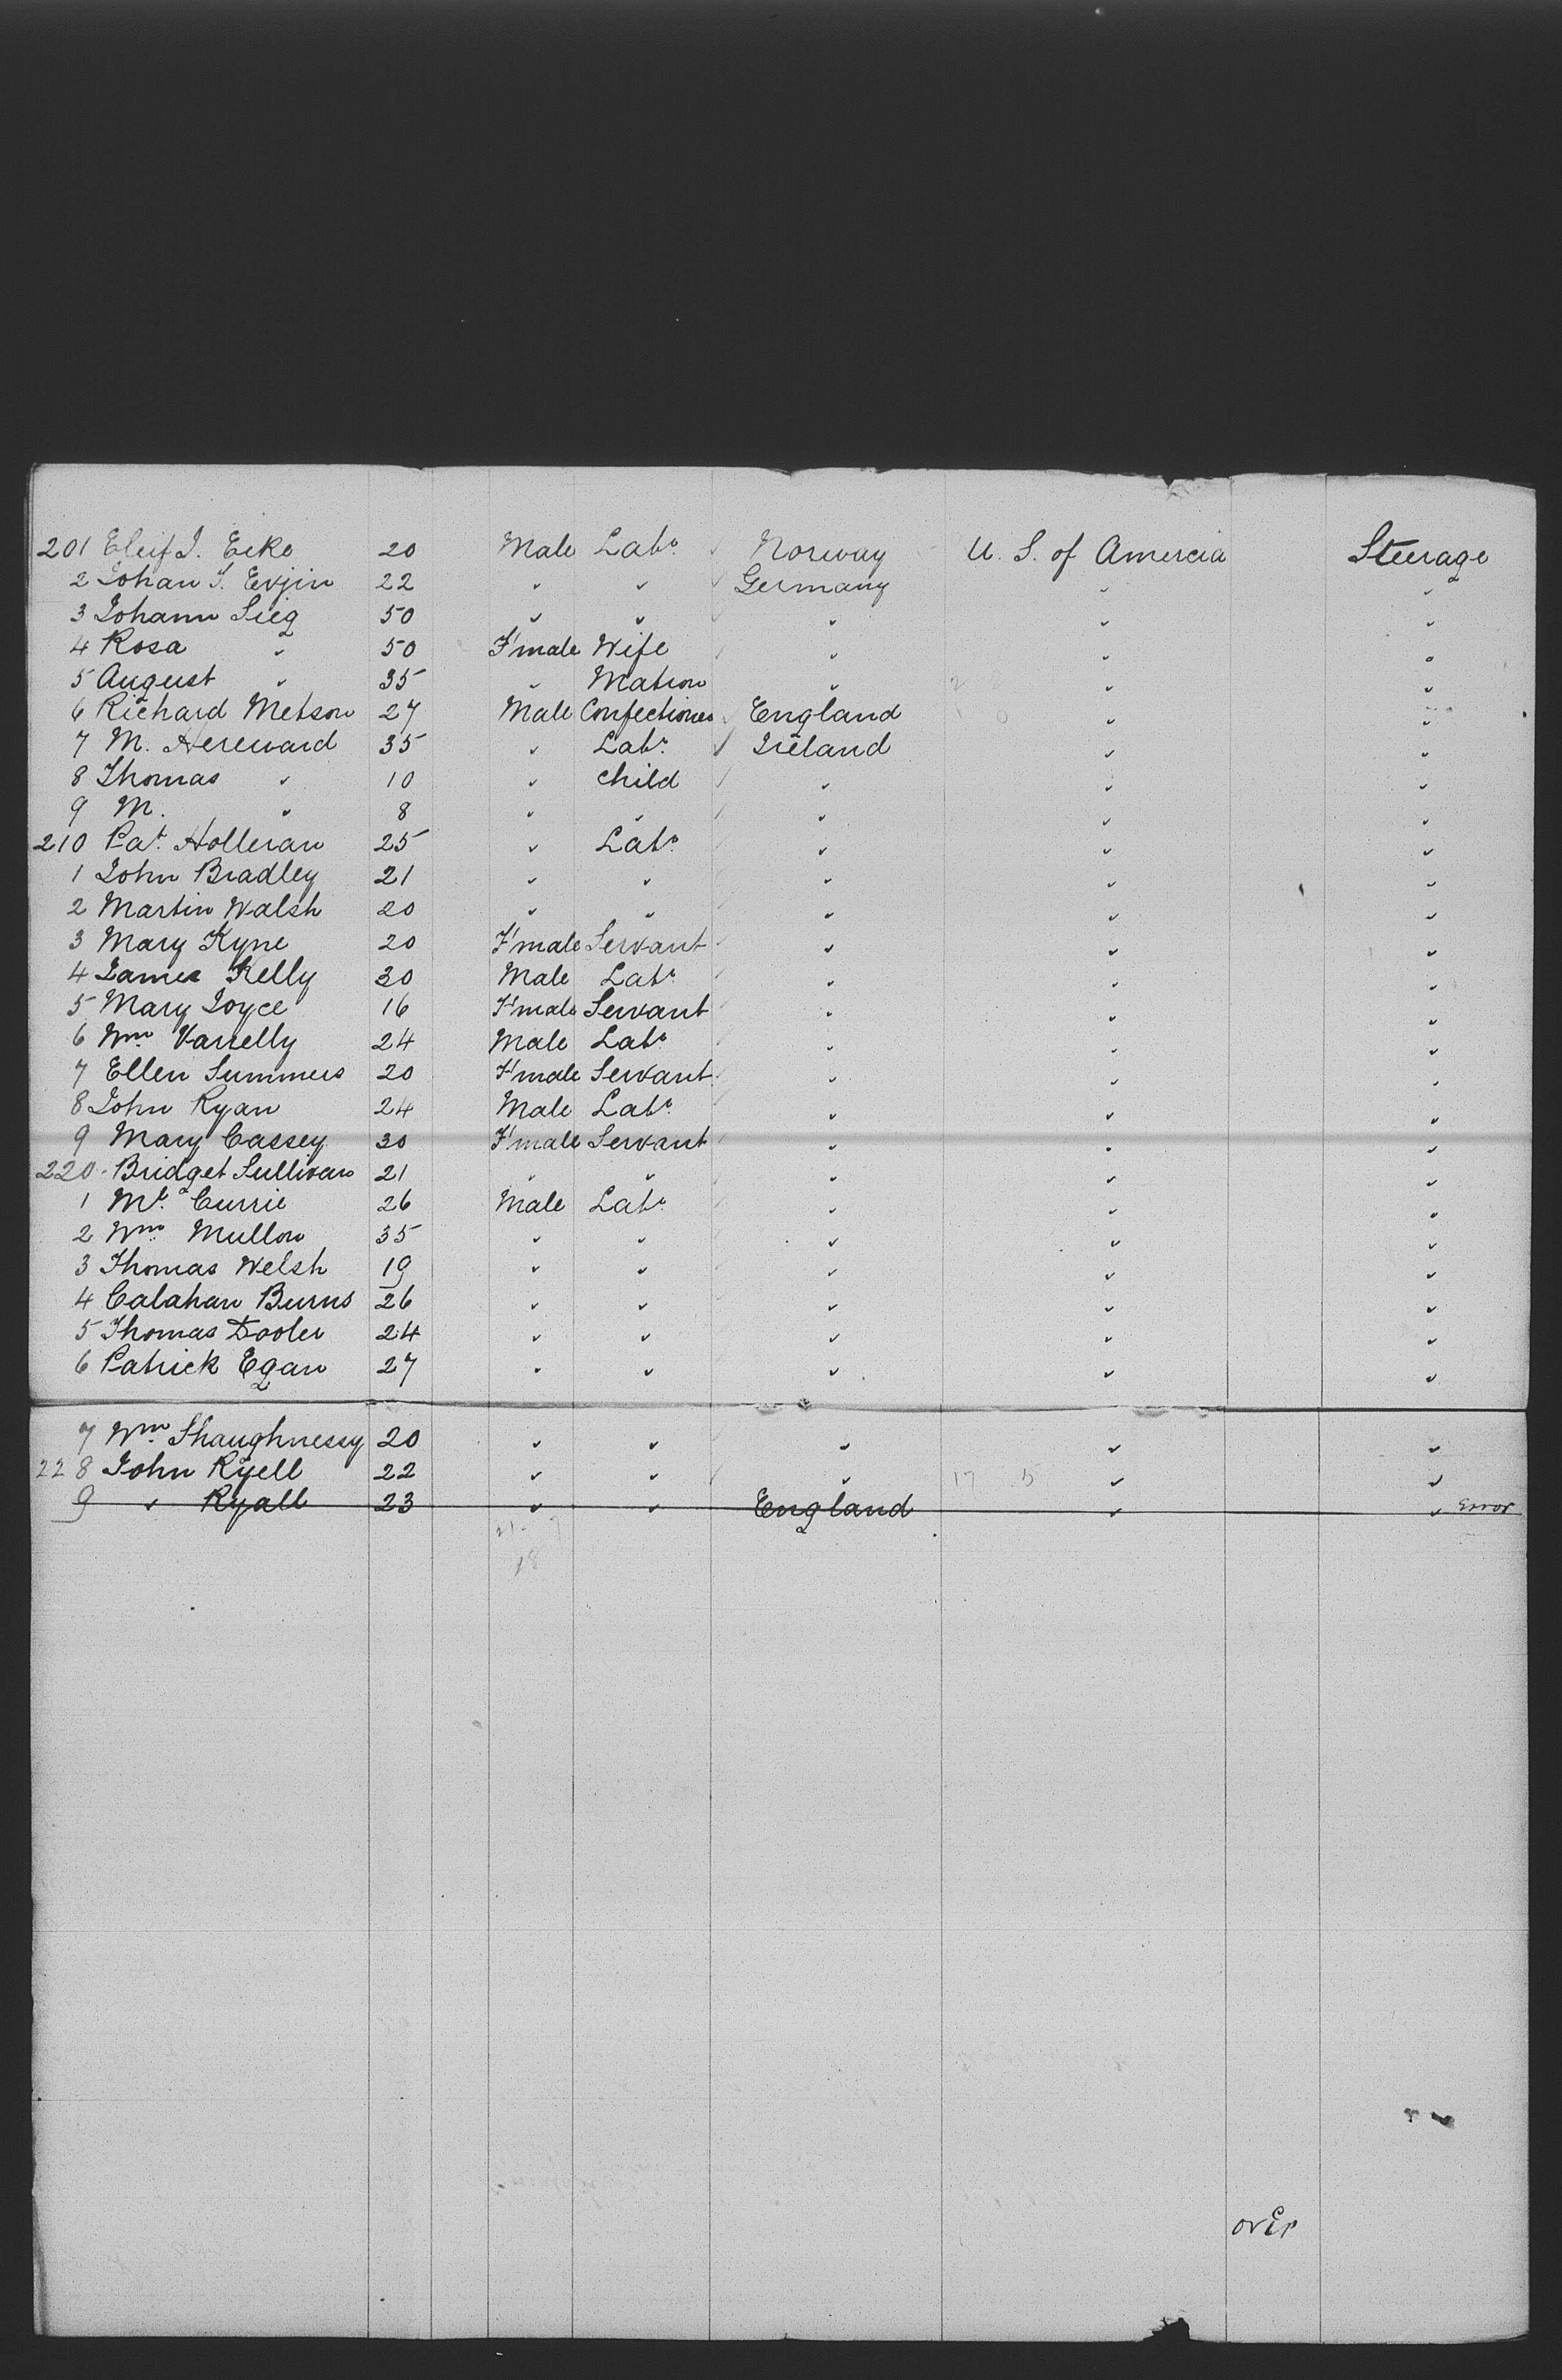 201 Eleif I. Eike 20 Male Labr. Norway U. S. of Amercia Steerage
2 Johan I. Evjin 22 " " Germany " "
3 Johann Sieg 50 " " " " "
4 Rosa " 50 F'male Wife " " "
5 August " 35 " Matron " " "
6 Richard Metson 27 Male Confectioner England " "
7 M. Hereward 35 " Labr. Ireland " "
8 Thomas " 10 " Child " " "
9 M. " 8 " " " " "
210 Pat. Holleran 25 " Labr. " " "
1 John Bradley 21 " " " " "
2 Martin Walsh 20 " " " " "
3 Mary Kyne 20 F'male Servant " " "
4 James Kelly 30 Male Labr. " " "
5 Mary Joyce 16 F'male Servant " " "
6 Wm. Varrelly 24 Male Labr. " " "
7 Ellen Summers 20 F'male Servant " " "
8 John Ryan 24 Male Labr. " " "
9 Mary Cassey 30 F'male Servant " " "
220 Bridget Sullivan 21 " " " " "
1 Mt. Currie 26 Male Labr. " " "
2 Wm. Mullon 35 " " " " "
3 Thomas Welsh 19 " " " " "
4 Calahan Burns 26 " " " " "
5 Thomas Dooler 24 " " " " "
6 Patrick Egan 27 " " " " "
7 Wm. Shaughnessy 20 " " " " "
228 John Ryell 22 " " " 17 5 " "
9 " Ryall 23 " " England " " Error
18
over